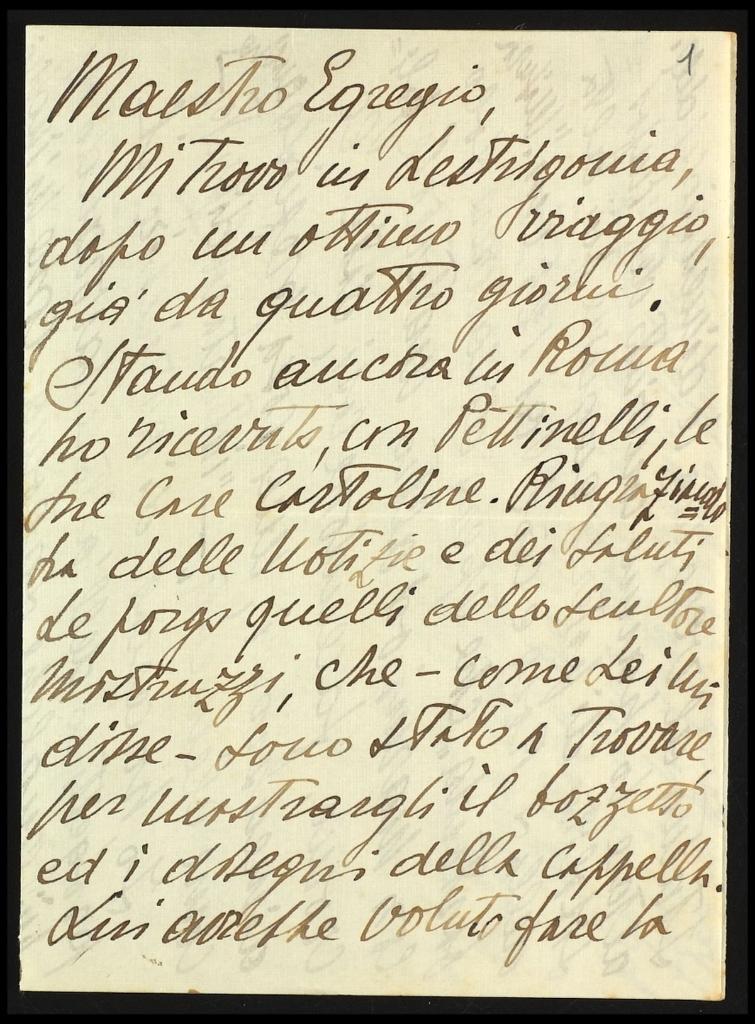 1
Maestro Egregio,
Mi trovo in Lestrigonia,
dopo un ottimo viaggio,
già da quattro giorni.
Stando ancora in Roma
ho ricevuto, con Pettinelli, le
sue care cartoline. Ringrazian=
la delle notizie e dei saluti
Le porgo quelli dello scultore
Mistruzzi, che - come Lei mi
disse - sono stato a trovare,
per mostrargli il bozzetto
ed i disegni della cappella.
Lui avrebbe voluto fare la